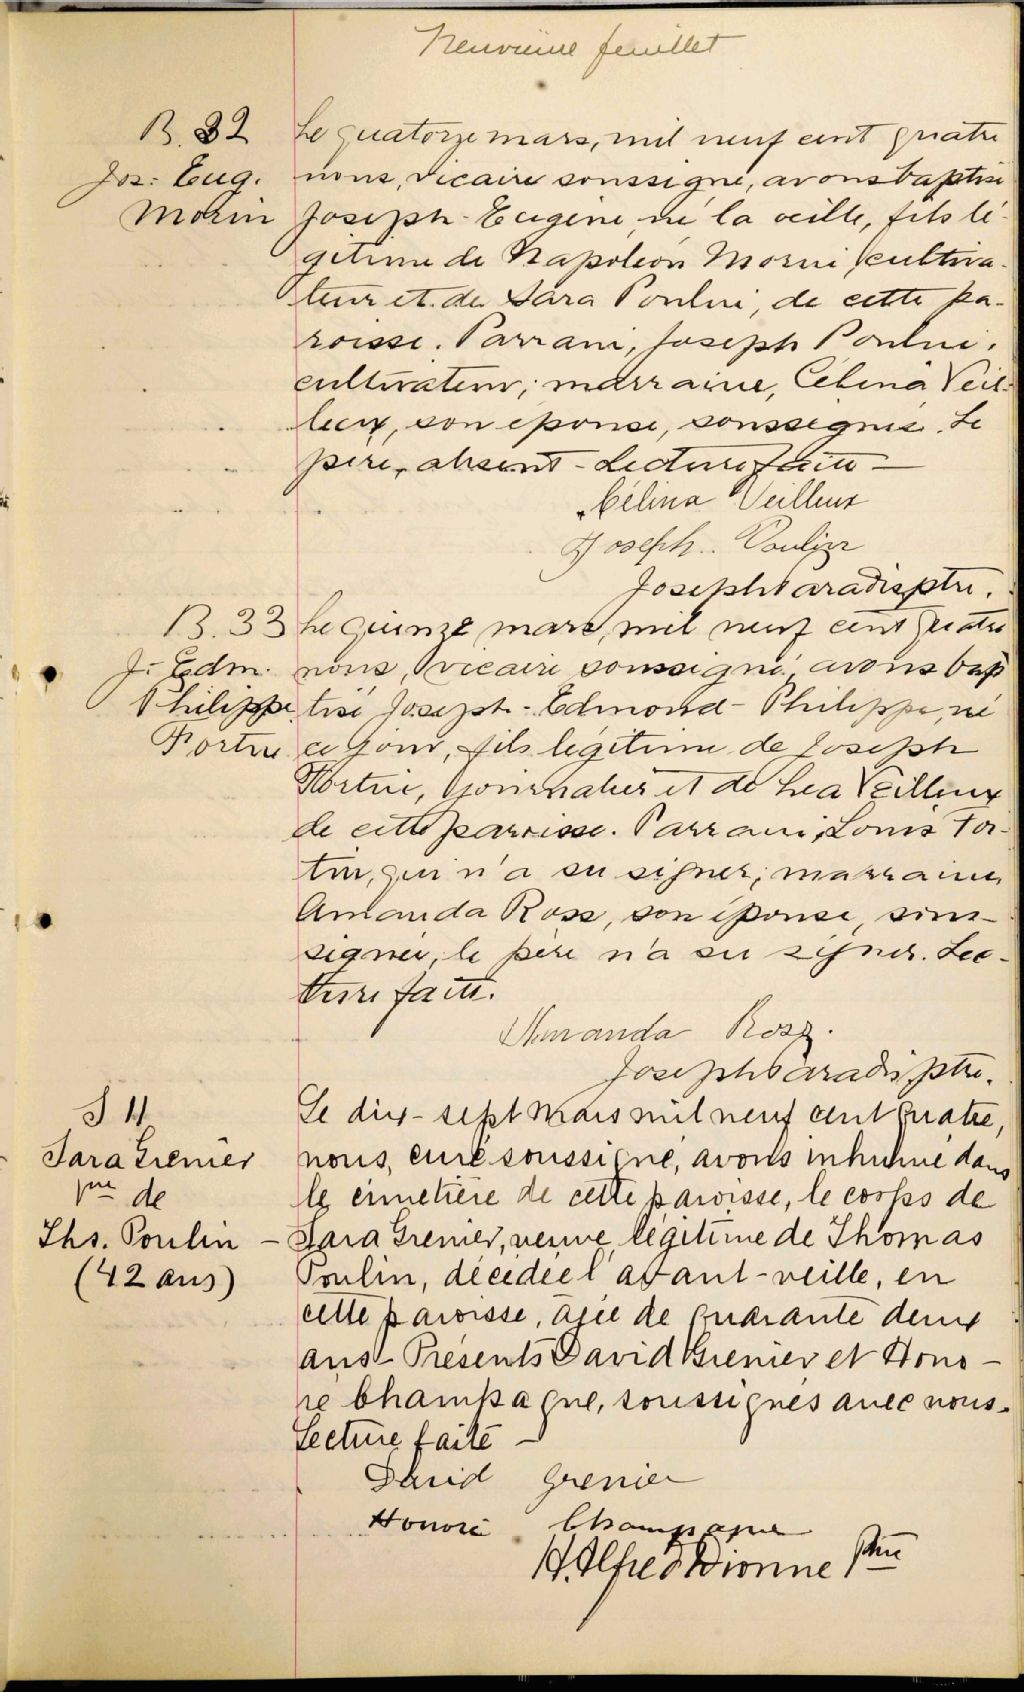 Neuvième feuillet
B. 32
Jos: Eug.
Morin
Le quatorze mars, mil neuf cent quatre
nous, vicaire soussigné, avons baptisé
Joseph-Eugène, né la veille, fils lé-
gitime de Napoléon Morin, cultiva-
teur et de Sara Poulin, de cette pa-
roisse. Parrain, Joseph Poulin,
cultivateur; marraine, Célina Veil-
leux, son épouse, soussignés. Le
père, absent - Lecture faite -
Célina Veilleux
Joseph Poulin
Joseph Paradis, ptre.
B. 33
J: Edm.
Philippe
Fortin
Le quinze mars, mil neuf cent quatre
nous, vicaire soussigné, avons bap
tisé Joseph-Edmond-Philippe, né
ce jour, fils légitime de Joseph
Fortin, journalier et de Léa Veilleux
de cette paroisse. Parrain, Louis For-
tin, qui n'a su signer, marraine,
Amanda Ross, son épouse, sous-
signée, le père n'a su signer. Lec-
ture faite.
Amanda Ross.
Joseph Paradis, ptre.
S 11
Sara Grenier
vve de
Ths. Poulin -
(42 ans)
Le dix-sept mars mil neuf cent quatre,
nous, curé soussigné, avons inhumé dans
le cimetière de cette paroisse, le corps de
Sara Grenier, veuve légitime de Thomas
Poulin, décédée l'avant-veille, en
cette paroisse, âgée de quarante deux
ans - Présents David Grenier et Hono-
ré Champagne, soussignés avec nous.
Lecture faite -
David Grenier
Honoré Champagne
H. Alfred Dionne Ptre